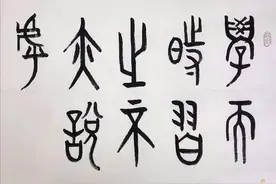 學而
時習
之不
亦說
乎